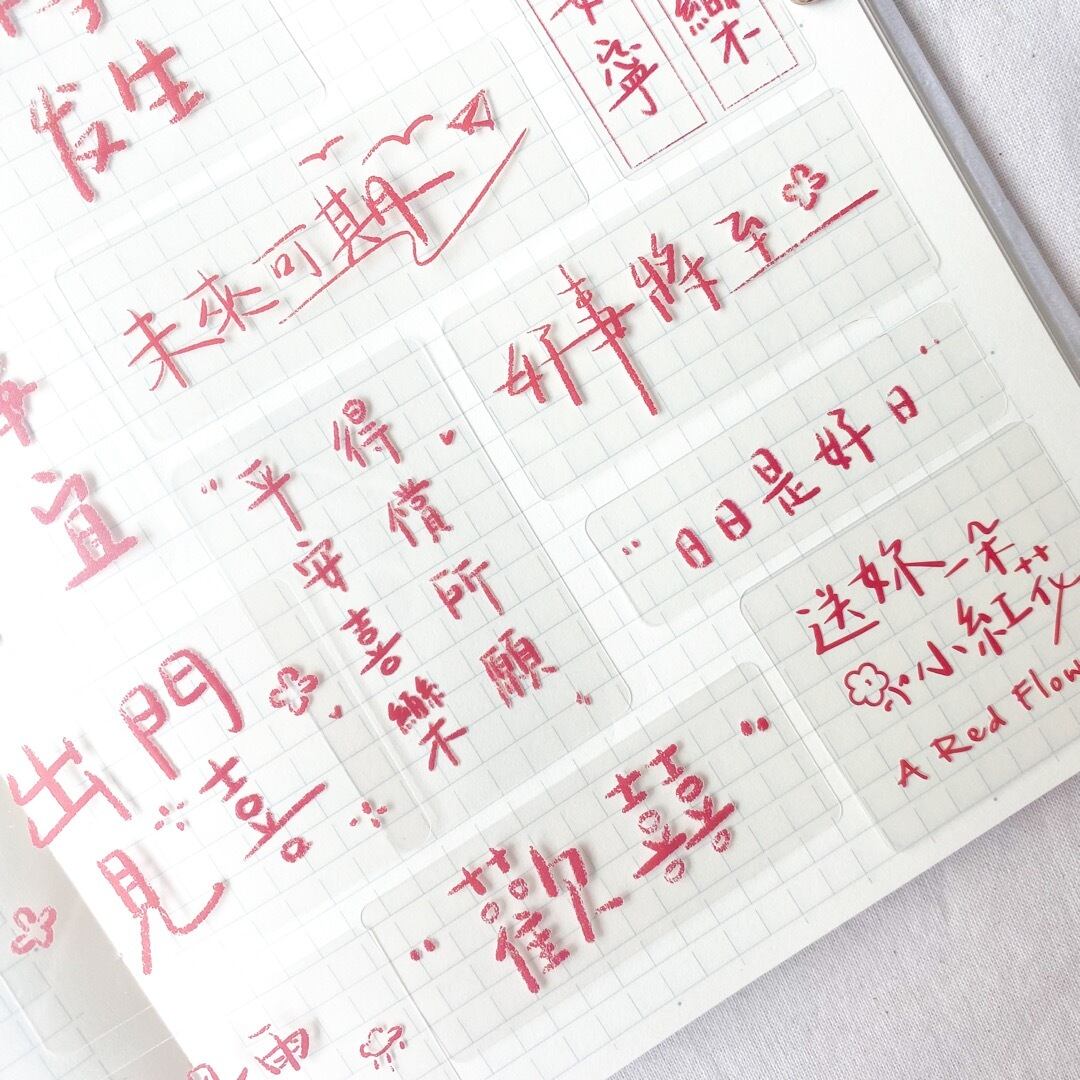 发生
寧
樂
未來可期
好事將至
日日是好日
得償所願
平安喜樂
宜
送妳一朵
小紅花
A Red Flow
出門
見喜
歡囍
雨